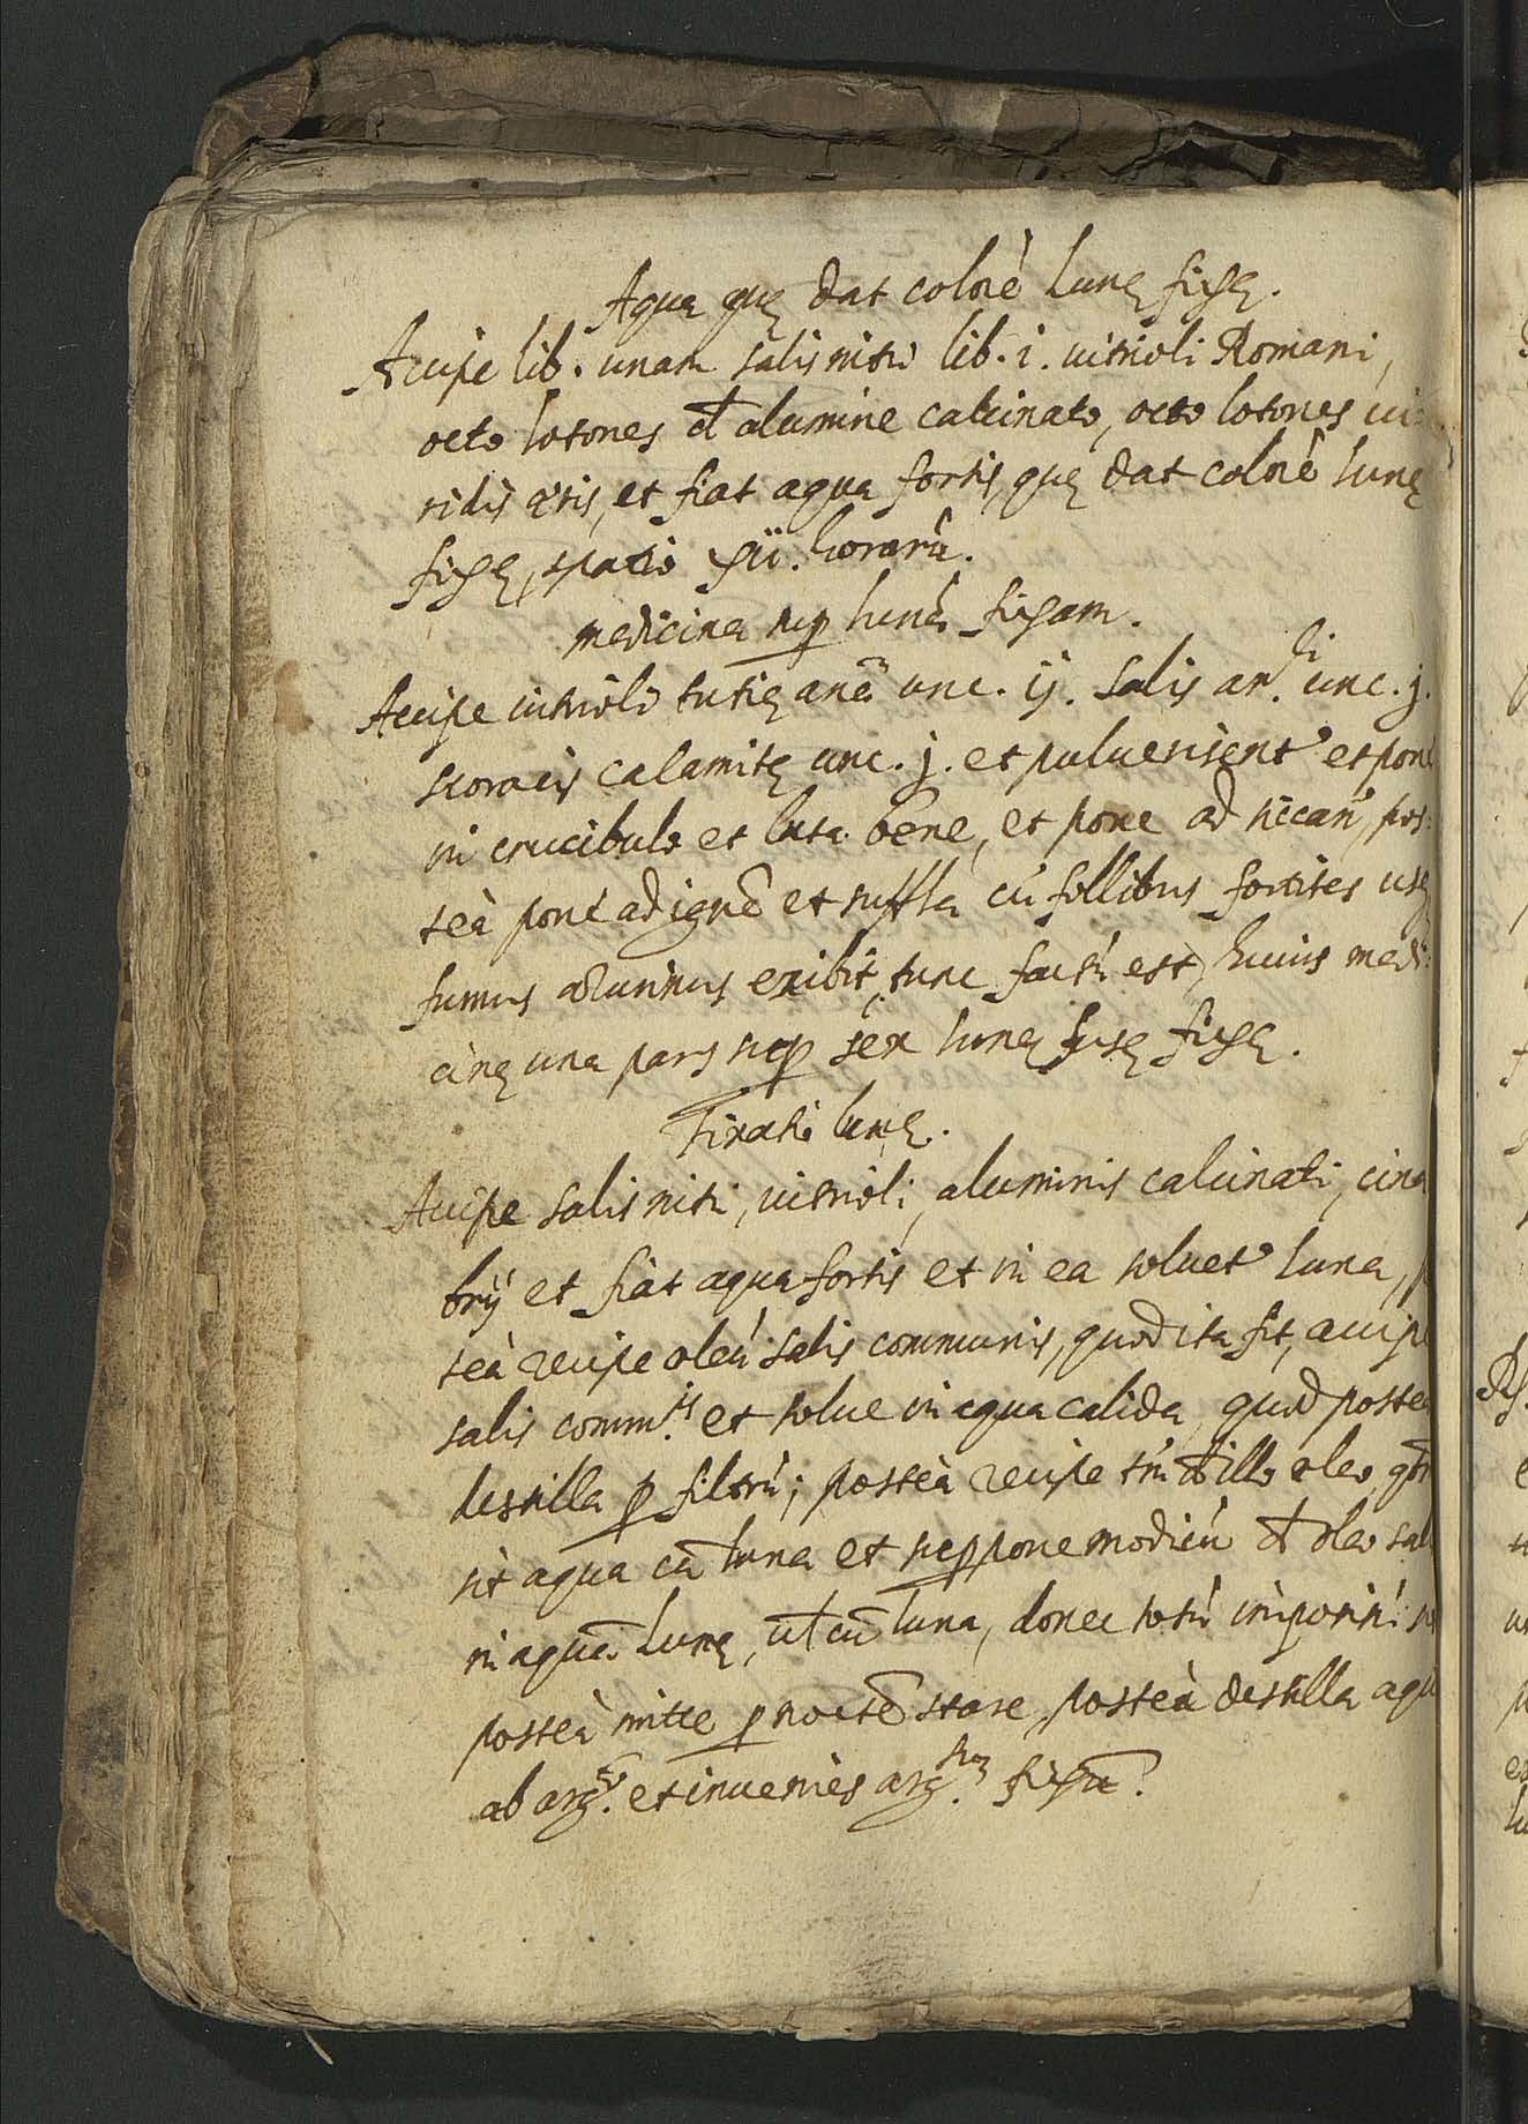 Aqua quę dat colorē lunę fixę.
Accipe lib. unam salis nitri lib. i. vitrioli Romani,
octo lotones de alumine calcinato, octo lotones vi:
ridis ęris, et fiat aqua fortis, quę dat colorē lunę
fixę, spatio xii. horarū.
medicina sup lunā fixam.
Accipe vitrioli tutię anā unc. ij. salis ar.ci unc. j.
storacis calamitę unc. j. et puluerisent' et pone
in crucibulo et luta bene, et pone ad siccan', pos:
teà pone ad ignē et suffla cū follibus fortiter usq
fumus citrinus exibit, tunc factū est, huius medi:
cinę una pars sup sex lunę fusę fixę.
Fixatio lunę.
Accipe salis nitri, vitrioli, aluminis calcinati, cina
brij et fiat aqua fortis et in ea soluet' luna,
teà recipe oleū salis communis, quod ita fit, accipe
salis comm.is et solue in aqua calida, quod postea
destilla p filtrū; posteà recipe tm de illo oleo, qtm
sit aqua cū luna et suppone modicū de oleo sal
in aquā lunę, vel cū luna, donec totū imposuisti
posteà mitte p noctē stare, posteà destilla aqu
ab arg.to et inuenies arg.tum fixū.